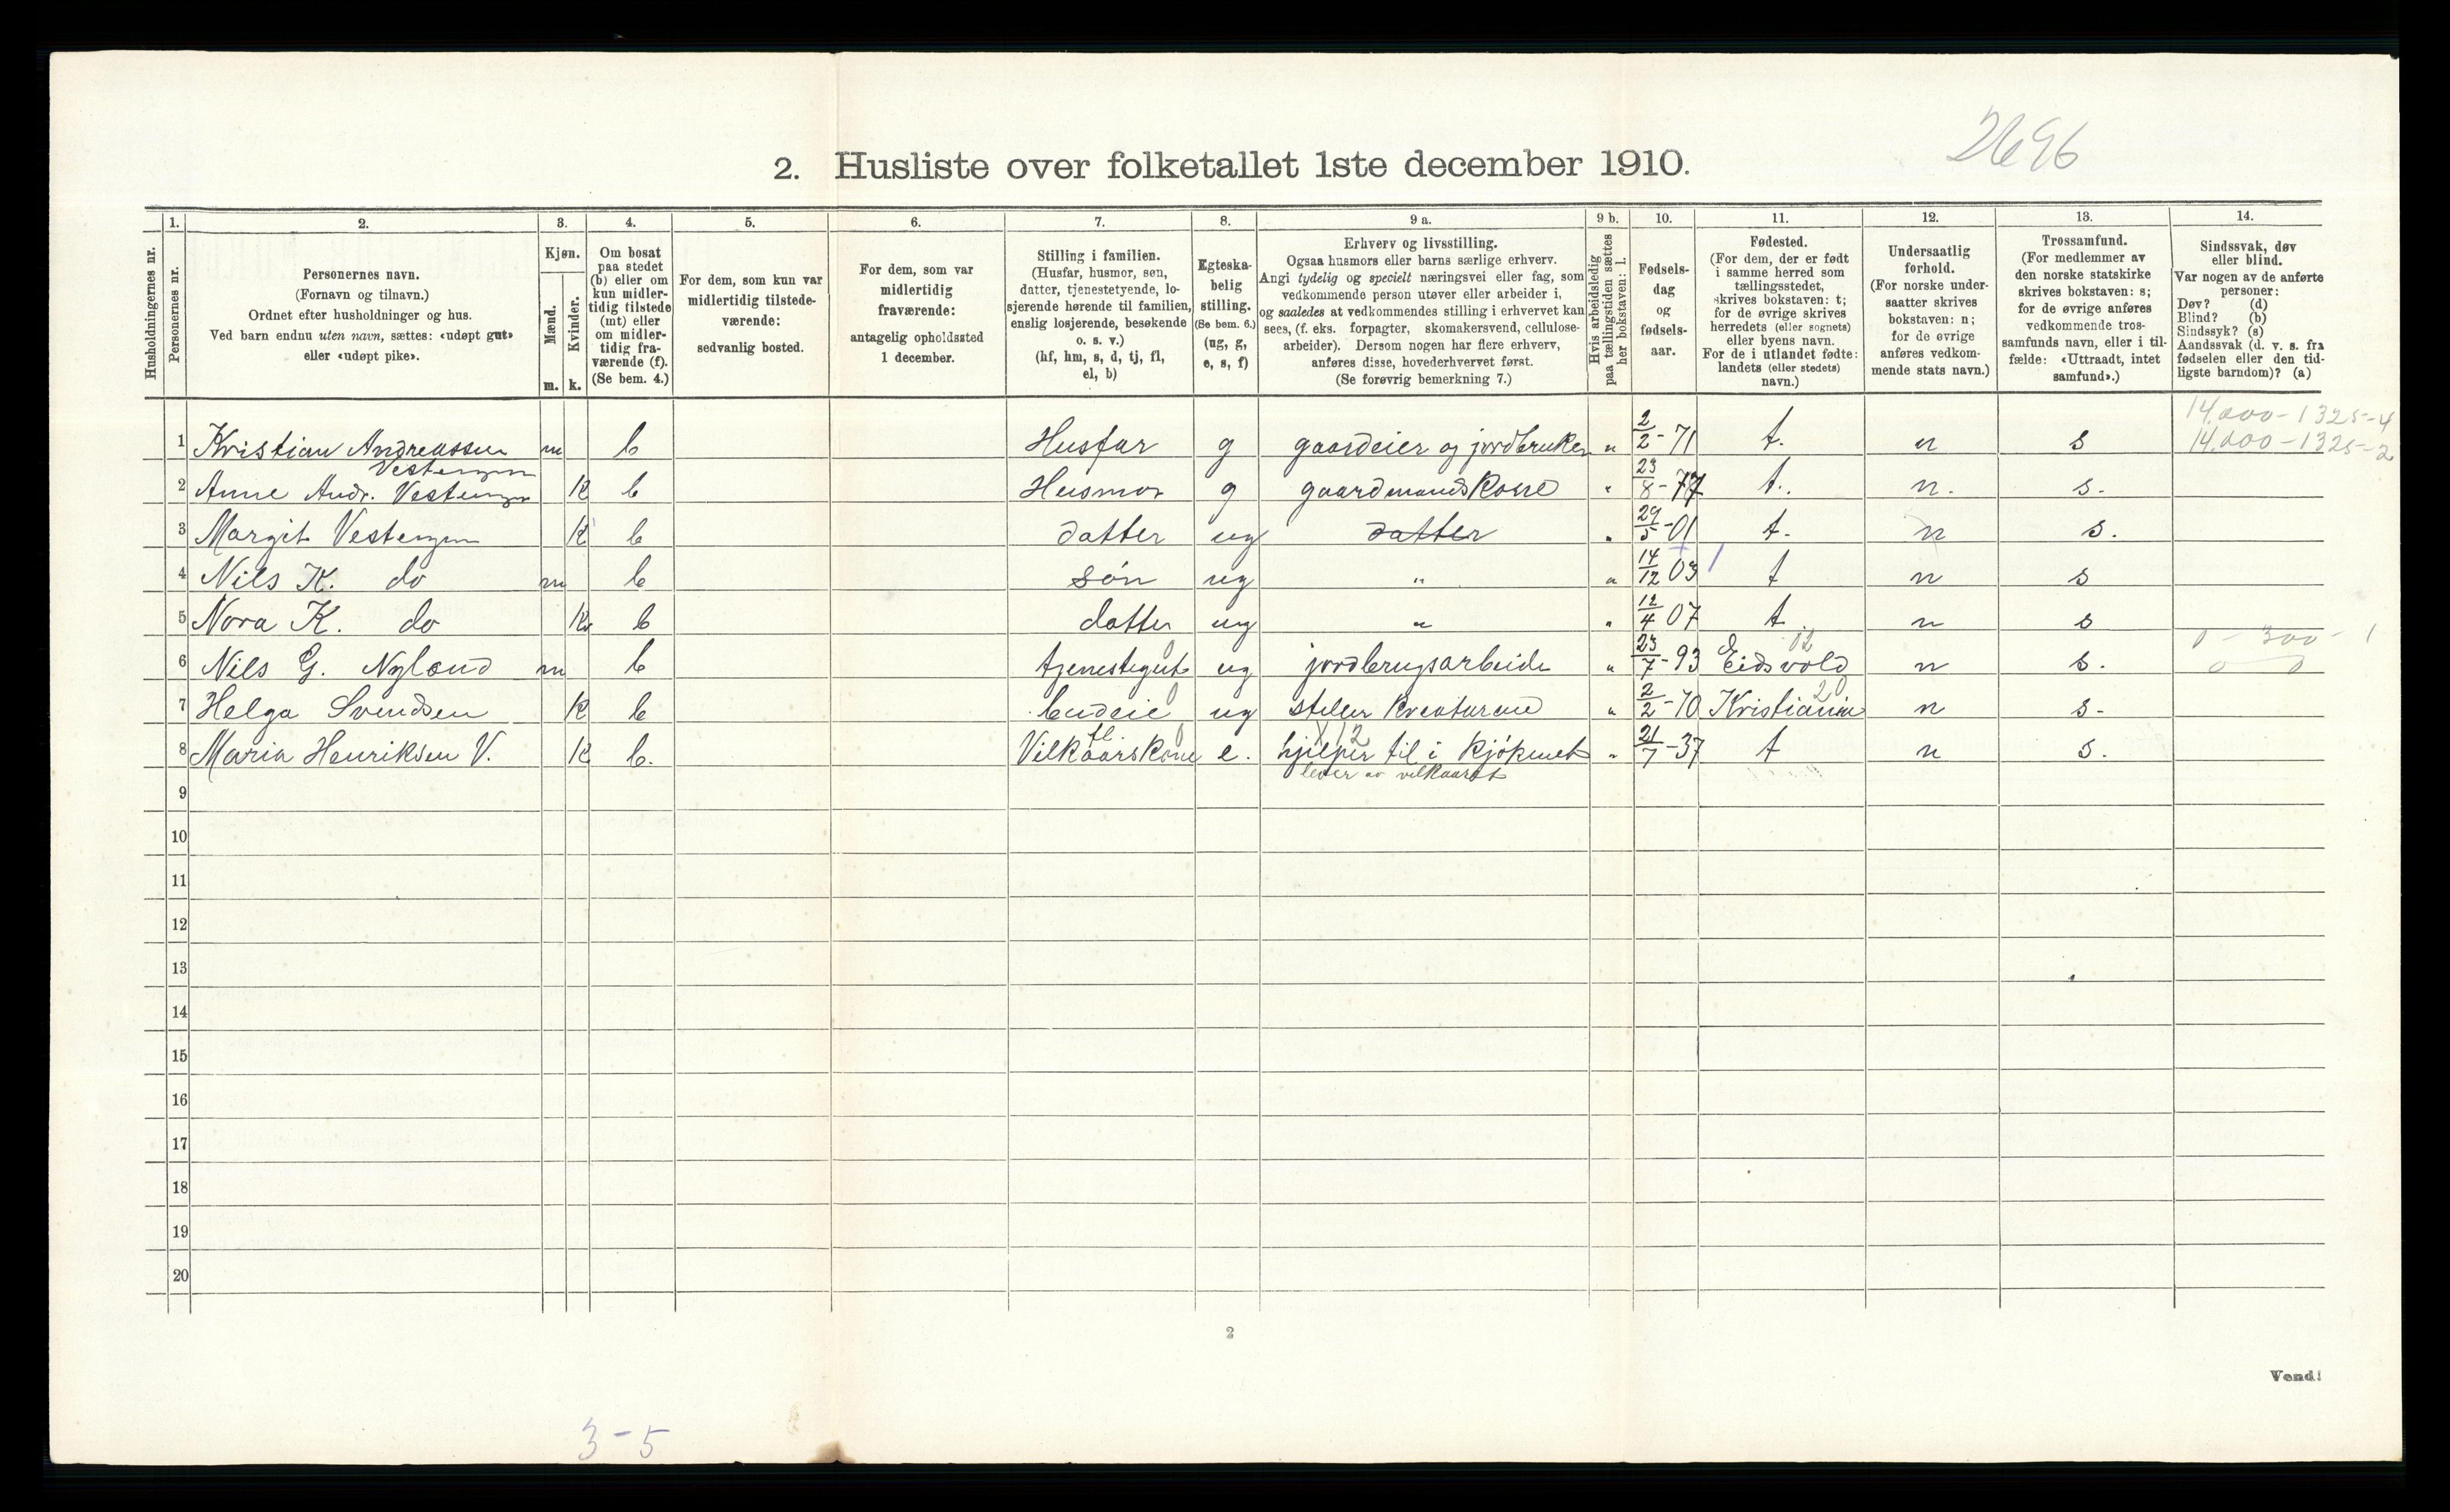 2696
2. Husliste over folketallet 1ste december 1910.
Husholdningernes nr.
1.
Personernes nr.
2.
Personernes navn.
(Fornavn og tilnavn.)
Ordnet efter husholdninger og hus.
Ved barn endnu uten navn, sættes: «udøpt gut»
eller «udøpt pike».
3.
Kjøn.
Mænd.
Kvinder.
m. k.
4.
Om bosat
paa stedet
(b) eller om
kun midler-
tidig tilstede
(mt) eller
om midler-
tidig fra-
værende (f).
(Se bem. 4.)
5.
For dem, som kun var
midlertidig tilstede-
værende:
sedvanlig bosted.
6.
For dem, som var
midlertidig
fraværende:
antagelig opholdssted
1 december.
7.
Stilling i familien.
(Husfar, husmor, søn,
datter, tjenestetyende, lo-
sjerende hørende til familien,
enslig losjerende, besøkende
o. s. v.)
(hf, hm, s, d, tj, fl,
el, b)
8.
Egteska-
belig
stilling.
(Se bem. 6.)
(ug, g,
e, s, f)
9 a.
Erhverv og livsstilling.
Ogsaa husmors eller barns særlige erhverv.
Angi tydelig og specielt næringsvei eller fag, som
vedkommende person utøver eller arbeider i,
og saaledes at vedkommendes stilling i erhvervet kan
sees, (f. eks. forpagter, skomakersvend, cellulose-
arbeider). Dersom nogen har flere erhverv,
anføres disse, hovederhvervet først.
(Se forøvrig bemerkning 7.)
9 b.
Hvis arbeidsledig
paa tællingstiden sættes
her bokstaven: l.
10.
Fødsels-
dag
og
fødsels-
aar.
11.
Fødested.
(For dem, der er født
i samme herred som
tællingsstedet,
skrives bokstaven: t;
for de øvrige skrives
herredets (eller sognets)
eller byens navn.
For de i utlandet fødte:
landets (eller stedets)
navn.)
12.
Undersaatlig
forhold.
(For norske under-
saatter skrives
bokstaven: n;
for de øvrige
anføres vedkom-
mende stats navn.)
13.
Trossamfund.
(For medlemmer av
den norske statskirke
skrives bokstaven: s;
for de øvrige anføres
vedkommende tros-
samfunds navn, eller i til-
fælde: «Uttraadt, intet
samfund».)
14.
Sindssvak, døv
eller blind.
Var nogen av de anførte
personer:
Døv? (d)
Blind? (b)
Sindssyk? (s)
Aandssvak (d. v. s. fra
fødselen eller den tid-
ligste barndom)? (a)
14.000-1325-4
1 Kristian Andreassen m b Husfar g gaardeier og jordbruker " 2/2-71 t. n s 14.000-1325-2
Vestengen
2 Anne Andr. Vestengen K b Husmor g gaardmandskone " 23/8-77 t. n. s.
3 Margit Vestengen K b datter ug datter " 29/5-01 t. n s.
4 Nils K. do m b søn ug " " 14/12 03 t n s
5 Nora K. do K b datter ug " " 12/4 07 t n s
02 0-300-1
6 Nils G. Nyland m b tjenestegut ug jordbrugsarbeide " 23/7-93 Eidsvold n s. 0 0
20
7 Helga Svendsen K b budeie ug steller kreaturene " 2/2-70 Kristiania n s-
fl. X12
8 Maria Henriksen V. K b. Vilkaarskone e. hjelper til i kjøkenet " 21/7-37 t n s.
lever av vilkaaret
9
10
11
12
13
14
15
16
17
18
19
20
2
Vend!
3-5